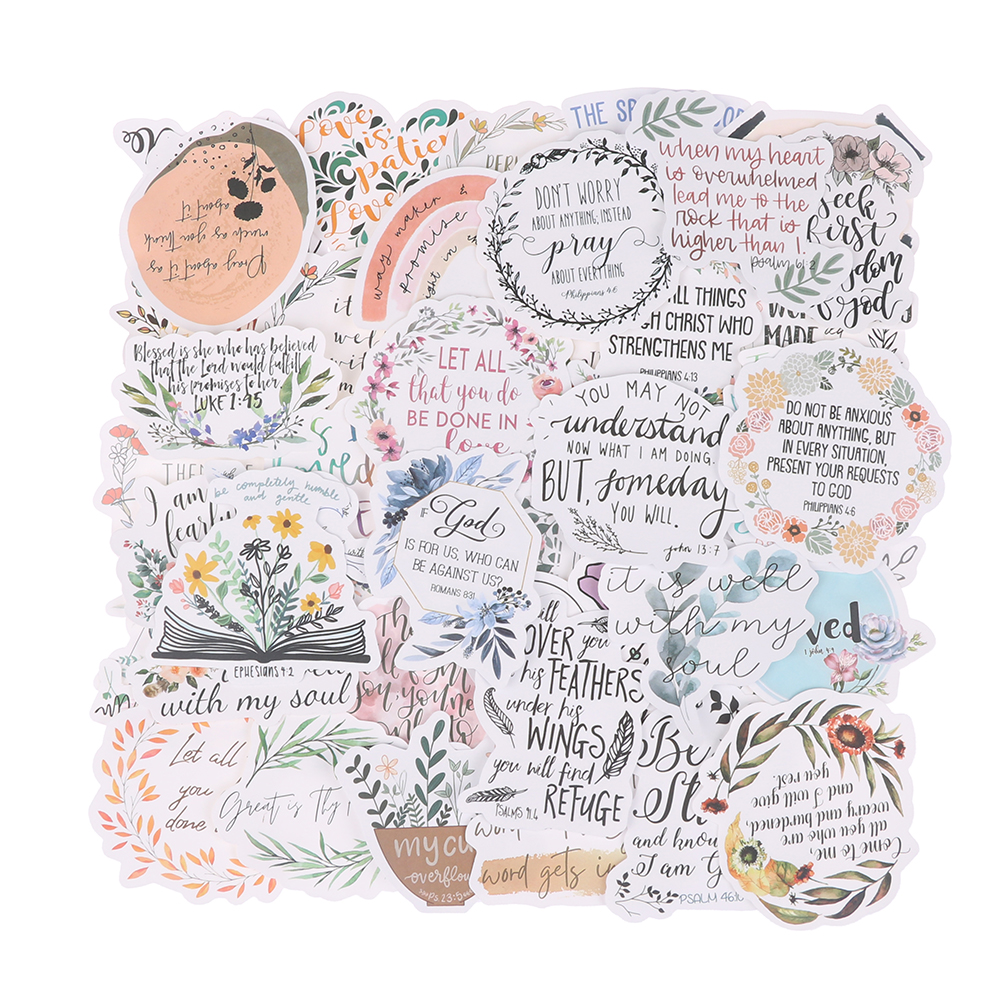 Pray about it as
much as you think
about it
Love
is
patie
Love
way maker &
promise
THE SP
DON'T WORRY
ABOUT ANYTHING; INSTEAD
pray
ABOUT EVERYTHING
Philippians 4:6
when my heart
is overwhelmed
lead me to the
rock that is
higher than I.
psalm 61:
Seek
first
God
MADE
Blessed is she who has believed
that the Lord would fulfill
his promises to her
LUKE 1:45
it
LET ALL
that you do
BE DONE IN
love
ALL THINGS
GH CHRIST WHO
STRENGTHENS ME
PHILIPPIANS 4:13
YOU MAY NOT
understand
NOW WHAT I AM DOING.
BUT, someday
YOU WILL.
john 13:7
DO NOT BE ANXIOUS
ABOUT ANYTHING, BUT
IN EVERY SITUATION,
PRESENT YOUR REQUESTS
TO GOD
PHILIPPIANS 4:6
THE
I am
fear
be completely humble
and gentle
EPHESIANS 4:2
IF God
IS FOR US, WHO CAN
BE AGAINST US?
ROMANS 8:31
it is well
with my
soul
ved
1 john 4:9
with my soul
will
OVER you
his FEATHERS
under his
WINGS
you will find
REFUGE
PSALMS 91:4
Let all
you
done
Great is Thy
my cu
overflow
Ps. 23:5
word
word gets in
Be
St
and know
I am G
PSALM 46:10
Come to me,
all you who are
weary and burdened,
and I will give
you rest.